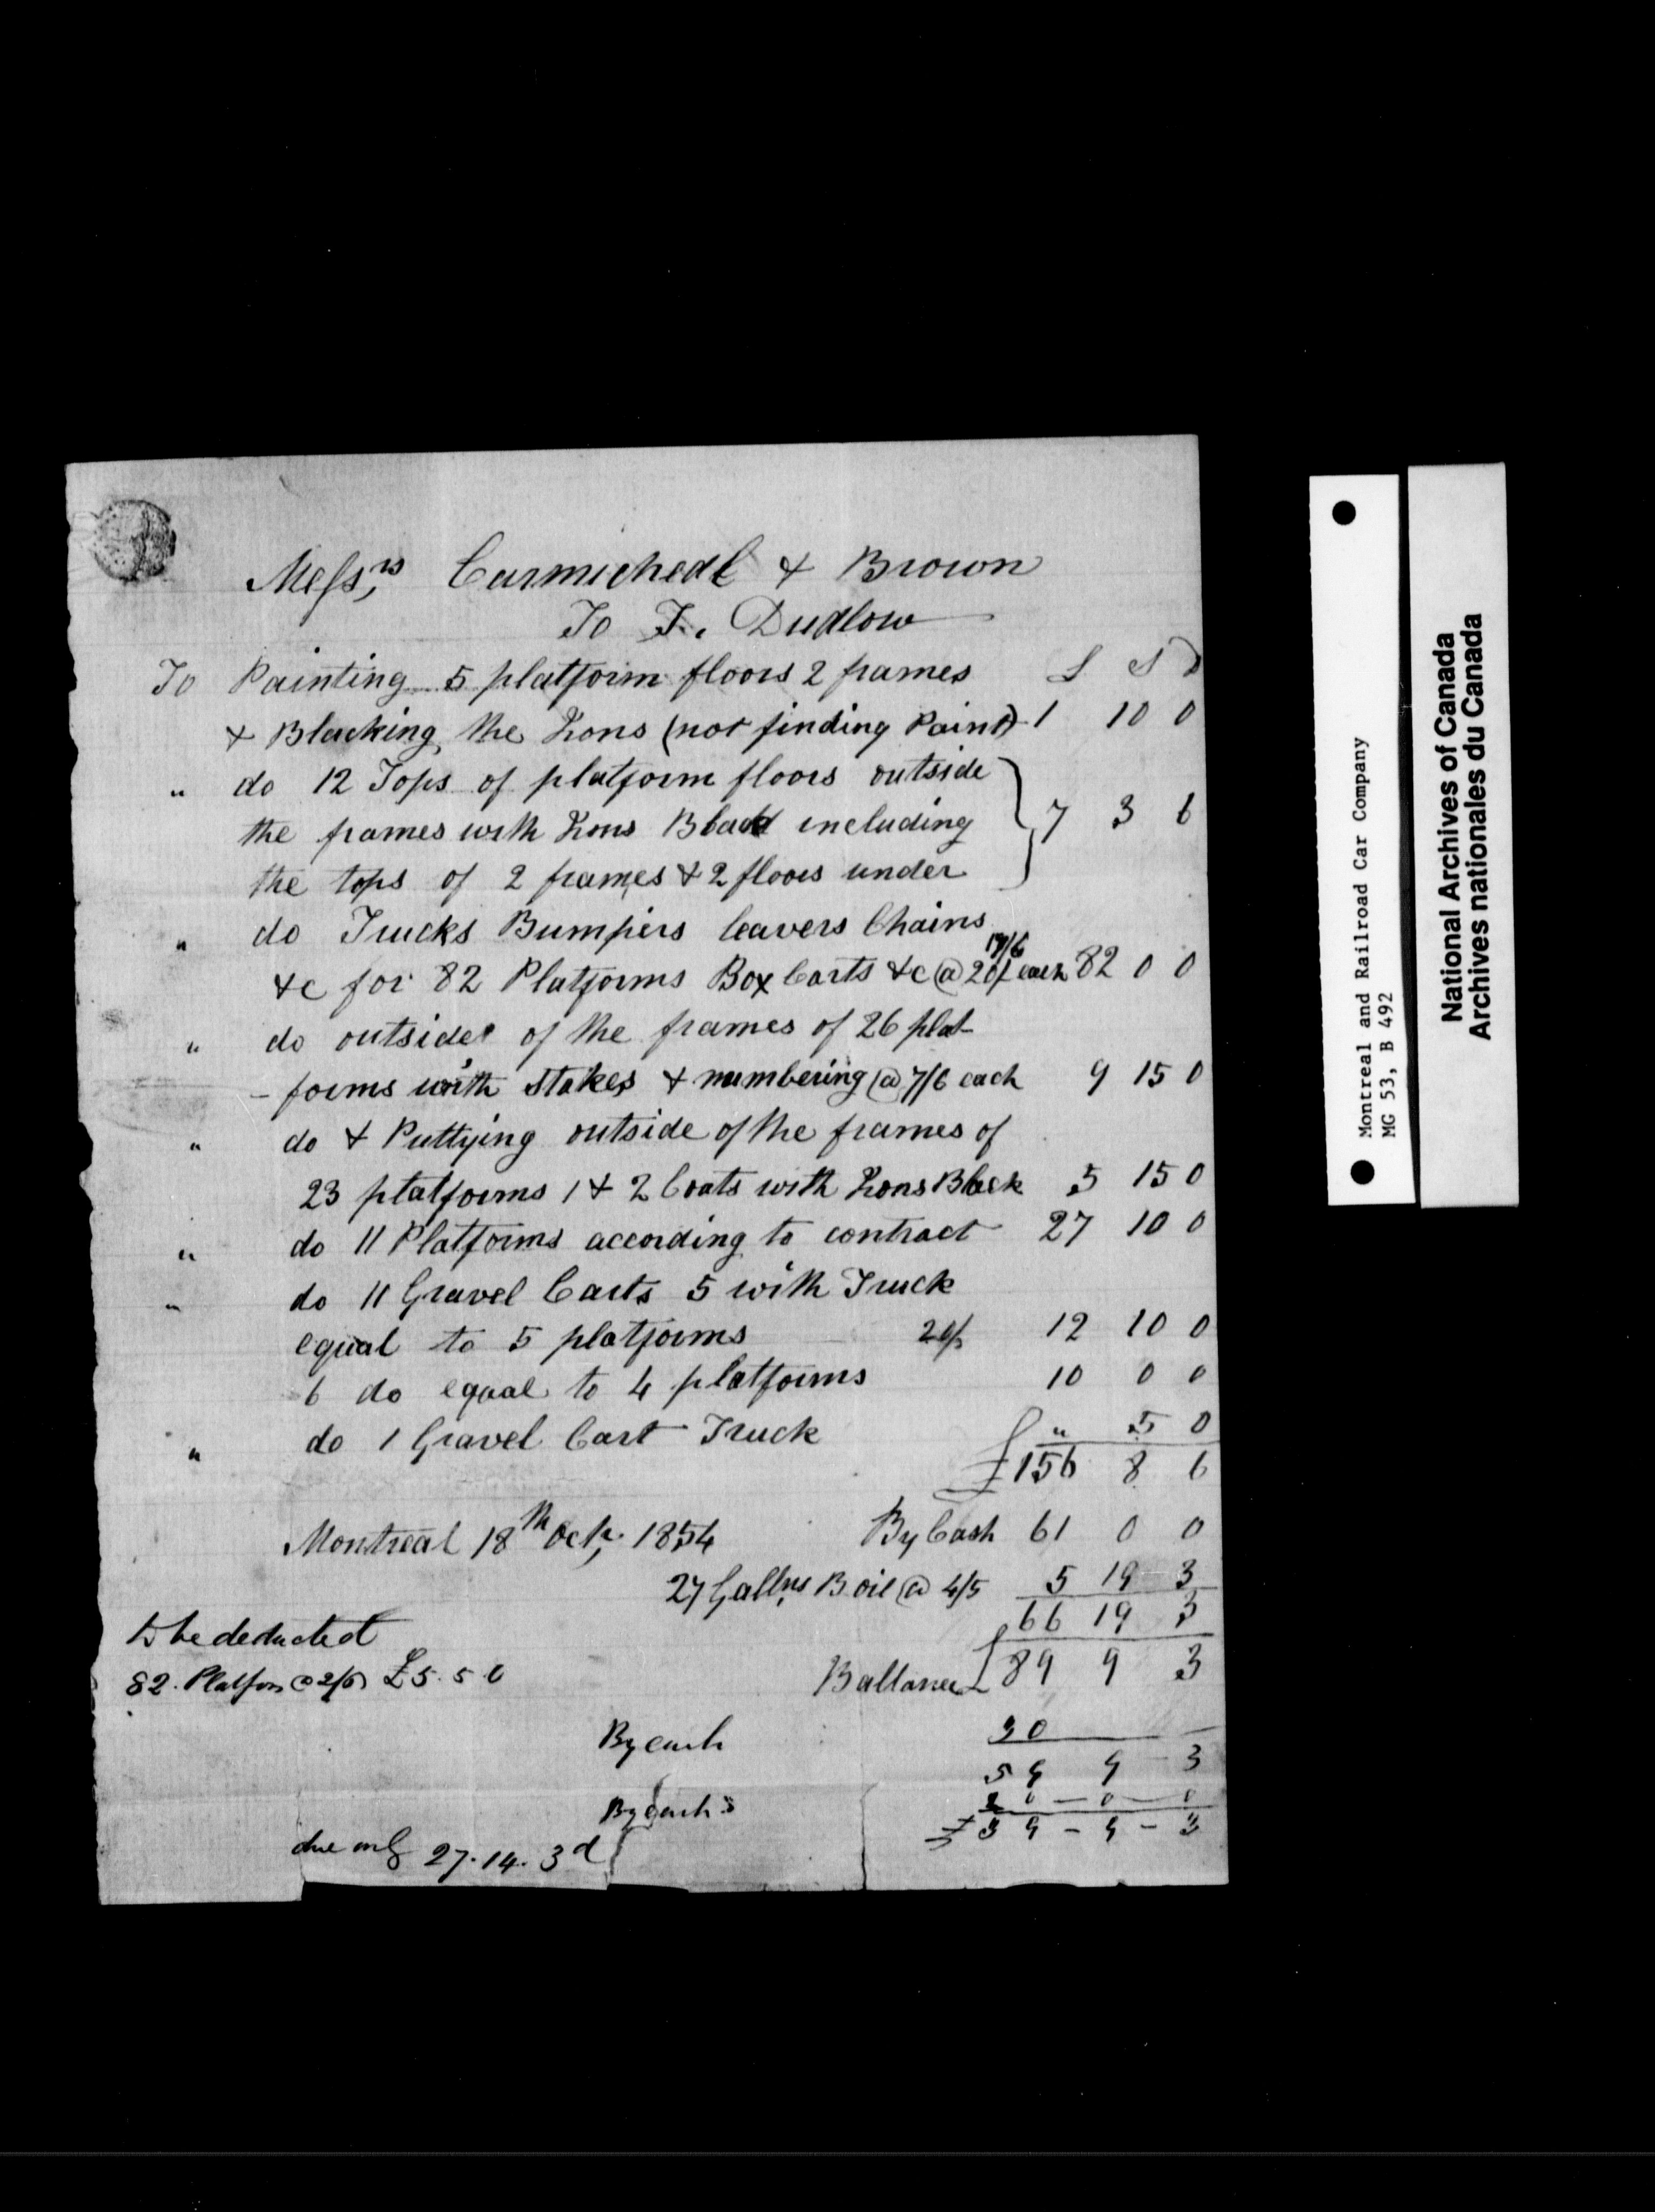 Messrs, Carmichael & Brown
To F. Dudlow
To Painting 5 platform floors 2 frames £ S D
& Blacking the Irons (not finding Paint) 1 10 0
" do 12 Tops of platform floors outside
the frames with Irons Black including 7 3 6
the tops of 2 frames & 2 floors under
" do Trucks Bumpers leavers Chains
&c for 82 Platforms Box Carts &c @ 20/ 17/6 each 82 0 0
" do outside of the frames of 26 plat-
- forms with stakes & numbering @ 7/6 each 9 15 0
" do & Puttying outside of the frames of
23 platforms 1 & 2 Coats with Irons Black 5 15 0
" do 11 Platforms according to contract 27 10 0
" do 11 Gravel Carts 5 with Truck
equal to 5 platforms 12 10 0
6 do equal to 4 platforms 10 0 0
" do 1 Gravel Cart Truck " 5 0
£156 8 6
Montreal 18th Octr, 1854 By Cash 61 0 0
27 Gallns B. oil @ 4/5 5 19 3
66 19 3
to be deducted
82. Platfors @ 2/6 £5. 5 0 Ballance £89 9 3
By cash 30
59 9 3
By cash 20-0-0
£39-9-3
due only 27.14.3d
Montreal and Railroad Car Company
MG 53, B 492
National Archives of Canada
Archives nationales du Canada